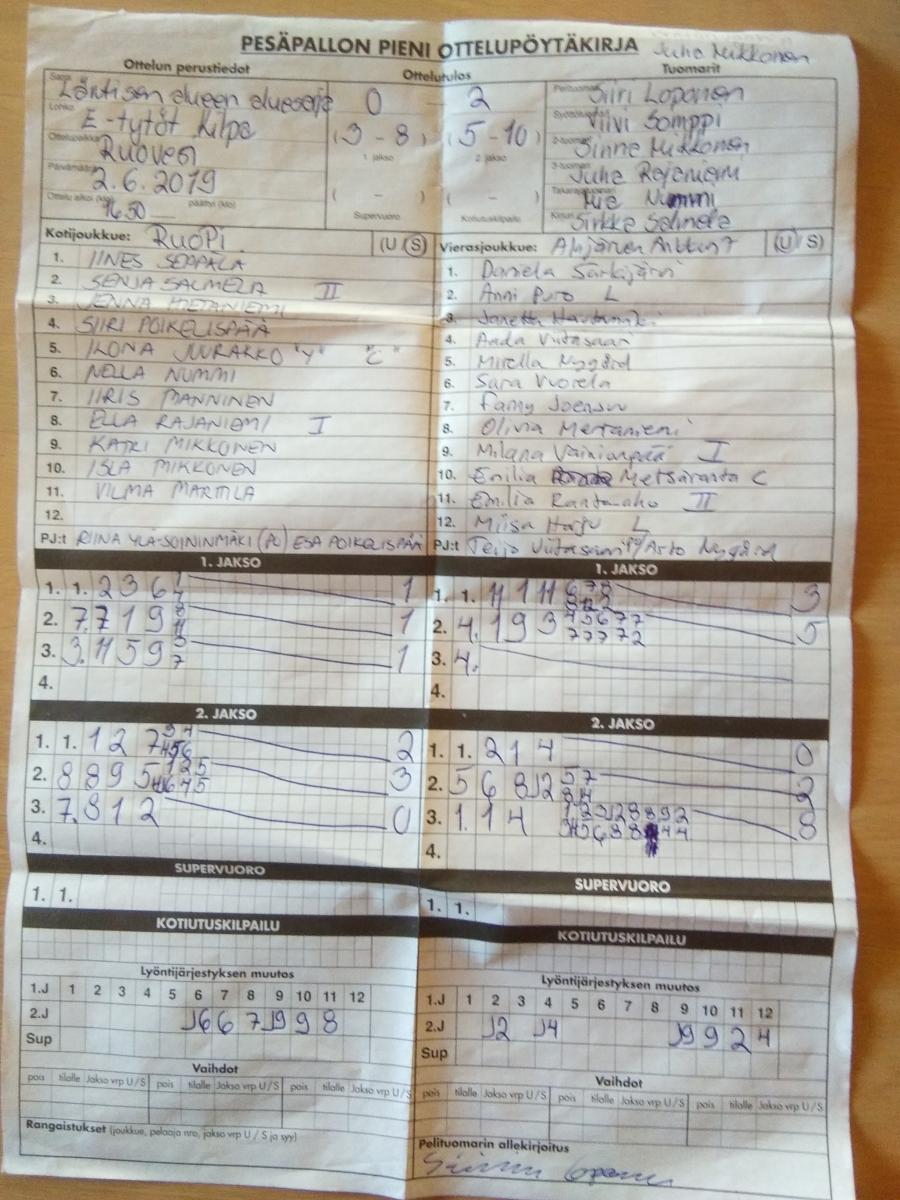 PESÄPALLON PIENI OTTELUPÖYTÄKIRJA Juha Mikkonen
Ottelun perustiedot Ottelutulos Tuomarit
Sarja Läntisen alueen aluesarja 0 2 Siiri Loponen
Lohko E-tytöt Kilpa (3 - 8) (5 - 10) Viivi Somppi
Ottelupaikka Ruovesi 1. jakso 2. jakso 2-tuomari Sinne Mikkonen
Päivämäärä 2.6.2019 3-tuomari Juha Rajaniemi
Ottelu alkoi (klo) 16.50 päättyi (klo) ( - ) ( - ) Takarajatuomari Nummi
Supervuoro Kotiutuskilpailu Kirjuri Sirkka Salmela
Kotijoukkue: RuoPi (U/S) Vierasjoukkue: (U/S)
1. IINES SEPPÄLÄ 1. Daniela Särkijärvi
2. SENJA SALMELA II 2. Anni Puro L
3. JENNA METANIEMI 3. Janetta Hautamäki
4. SIIRI POIKELISPÄÄ 4. Aada Viitasaari
5. ILONA JUURAKKO "V" "C" 5. Mirella Nygård
6. NELLA NUMMI 6. Sara Vuorela
7. IIRIS MANNINEN 7. Fanny Joensuu
8. ELLA RAJANIEMI I 8. Olivia Metaniemi
9. KATRI MIKKONEN 9. Milana Vainionpää I
10. ISLA MIKKONEN 10. Emilia Metsäranta C
11. VILMA MARTTILA 11. Emilia Rantanaho II
12. 12. Miisa Harju L
PJ:t RIINA YLÄ-SOININMÄKI (PV) ESA POIKELISPÄÄ PJ:t Teijo Viitasaari /Arto Nygård
1. JAKSO 1. JAKSO
1. 1. 2 3 6 1 1. 1. 11 1 11 3
2. 7. 7 1 9 1 2. 4. 1 9 3 5
3. 3. 11 5 9 1 3. 4.
4. 4.
2. JAKSO 2. JAKSO
1. 1. 1 2 7 2 1. 1. 2 1 4 0
2. 8 8 9 5 3 2. 5 6 8 J2 2
3. 7. 8 1 2 0 3. 1. 1 4 8
4. 4.
SUPERVUORO SUPERVUORO
1. 1. 1. 1.
KOTIUTUSKILPAILU KOTIUTUSKILPAILU
Lyöntijärjestyksen muutos Lyöntijärjestyksen muutos
1.J 1 2 3 4 5 6 7 8 9 10 11 12 1.J 1 2 3 4 5 6 7 8 9 10 11 12
2.J J6 6 7 J9 9 8 2.J J2 J4 J9 9 2 4
Sup Sup
Vaihdot Vaihdot
pois tilalle Jakso vrp U/S pois tilalle Jakso vrp U/S pois tilalle Jakso vrp U/S pois tilalle Jakso vrp U/S pois tilalle Jakso vrp U/S pois tilalle Jakso vrp U/S
Rangaistukset (joukkue, pelaaja nro, jakso vrp U/S ja syy)
Pelituomarin allekirjoitus